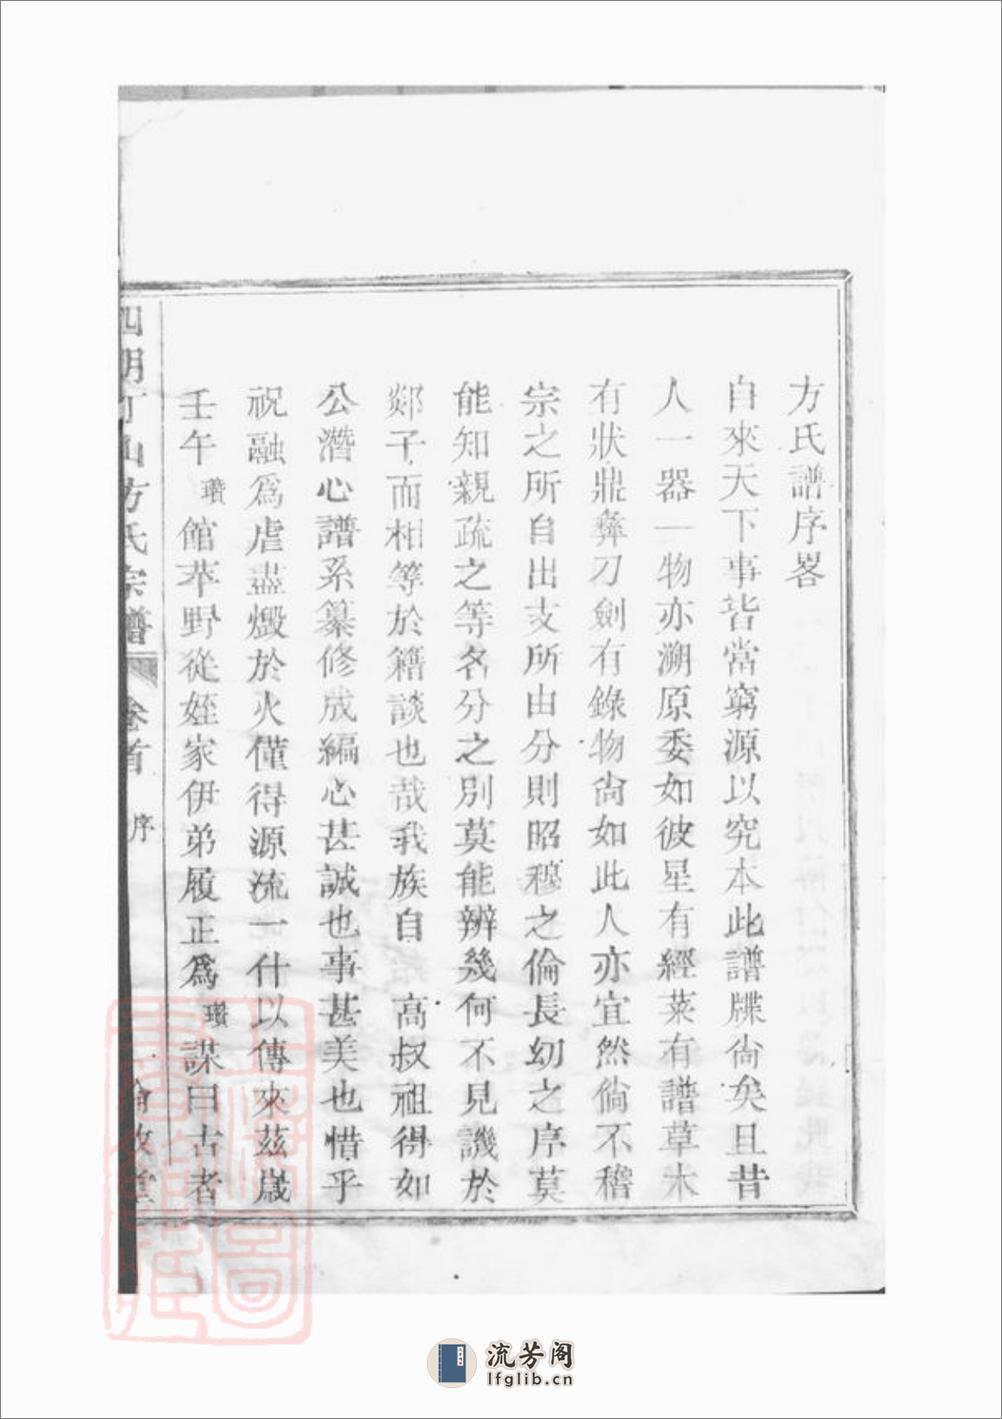 方氏譜序畧
自來天下事皆當窮源以究本此譜牒尙矣且昔
人一器一物亦溯原委如彼星有經菜有譜草木
有狀鼎彝刀劍有錄物尙如此人亦宜然倘不稽
宗之所自出支所由分則昭穆之倫長幼之序莫
能知親疏之等名分之別莫能辨幾何不見譏於
郯子而相等於籍談也哉我族自 高叔祖得如
公潛心譜系纂修成編心甚誠也事甚美也惜乎
祝融爲虐盡燬於火僅得源流一什以傳來茲歲
壬午瓚館萃野從姪家伊弟履正爲瓚謀曰古者
四明丁山方氏宗譜 卷首 序 敦堂
流芳阁
lfglib.cn